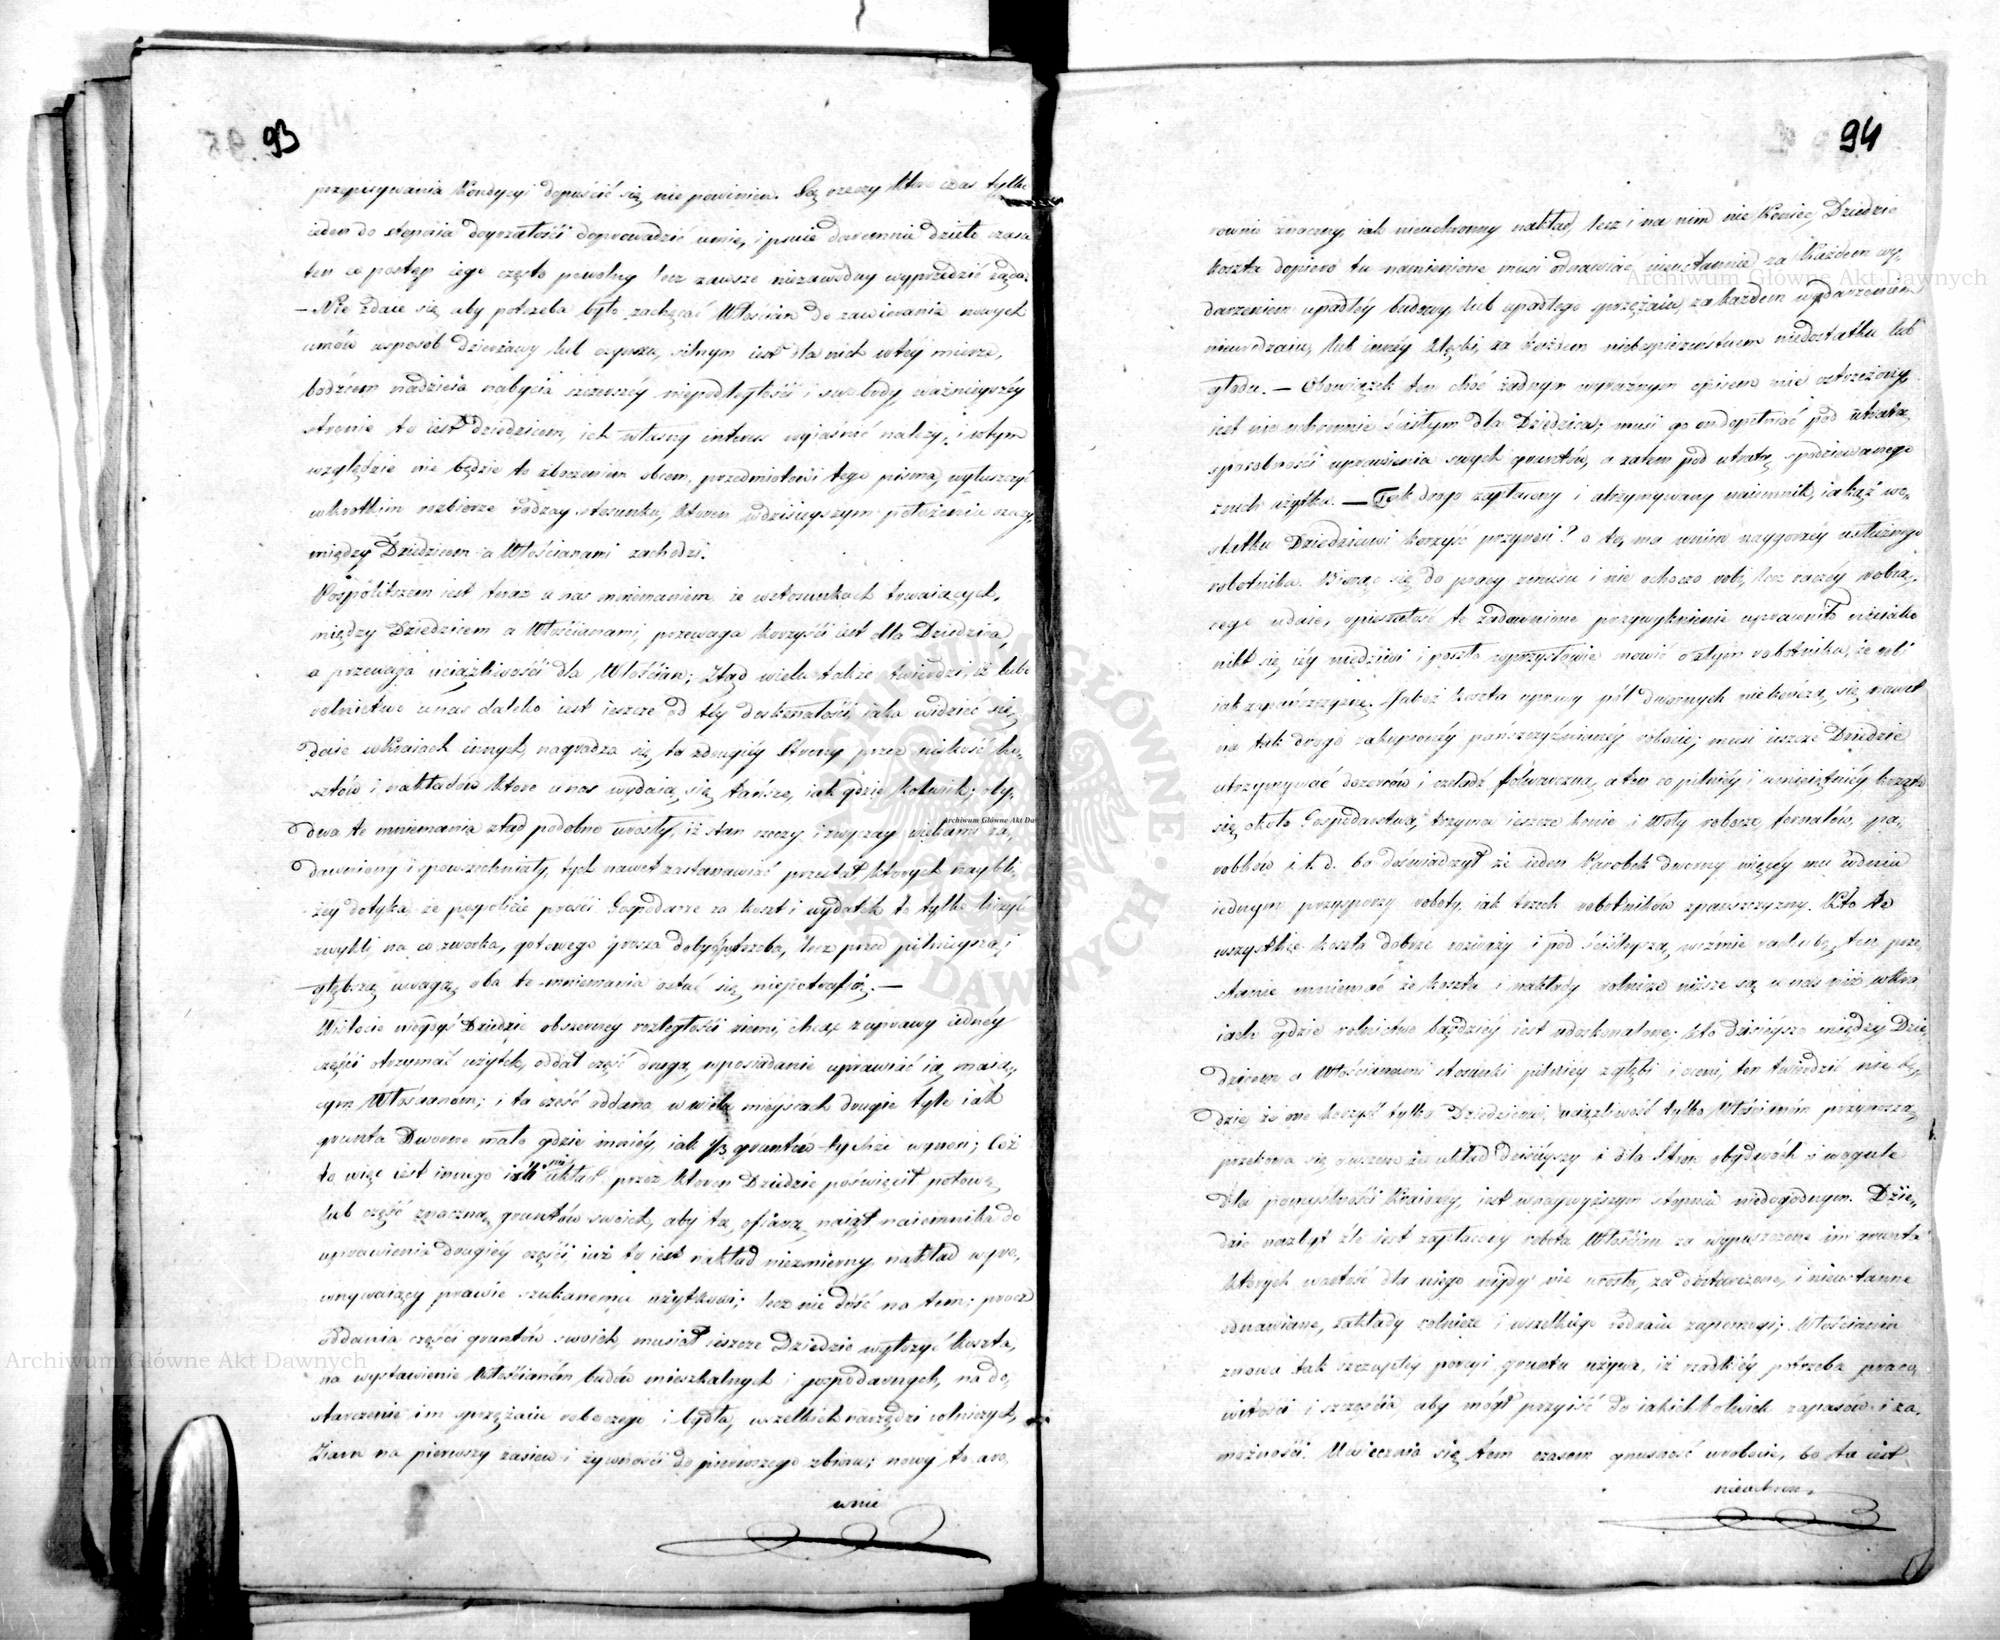 93
przepisywania Kondycyi dopuścić się nie powinien. Są rzeczy które czas tylko
ieden do stopnia doyrzałości doprowadzić umie, i psuie daremnie dzieło czasu
ten co postęp iego często powolny lecz zawsze niezawodny wyprzedzić żąda.
– Nie zdaie się aby potrzeba było zachęcać Włościan do zawierania nowych
umów wsposób dzierżawy lub czynszu, silnym iest dla nich wtéy mierze,
bodźcem nadzieia nabycia szerszéy niepodległości i swobody, ważnieyszéy
stronie to iest dziedzicom, ich własny interes wyiaśnić należy, i wtym
względzie nie będzie to zboczeniem obcem, przedmiotowi tego pisma, wyłuszczyć
wkrótkim rozbiorze rodzay stosunku, któren wdzisieyszym położeniu rzeczy,
między Dziedzicem a Włościanami zachodzi.
Pospolitszem iest teraz u nas mniemaniem że wstosunkach trwaiących,
między Dziedzicem a Włościanami, przewaga korzyści iest dla Dziedzica,
a przewaga uciążliwości dla Włościan; Ztąd wielu także twierdzi, iż lubo
rolnictwo u nas daleko iest ieszcze od téy doskonałości, iaka widzieć się
daie wkraiach innych, nagradza się to zdrugiéy Strony przez niskość ko,
sztów i nakładów które u nas wydaią się tańsze, iak gdzie kolwiek; oby,
dwa te mniemania ztąd podobno urosły, iż stan rzeczy i zwyczay wiekami za,
dawniony i spowszechniały, tych nawet zastanawiać przestał, których naybli,
żéy dotyka, że pospolicie prości Gospodarze za koszt i wydatek to tylko liczyć
zwykli na co zworka, gotowego grosza dobyć potrzeba, lecz przed pilnieyszą i
głębszą uwagą, oba te mniemania ostać się niepotrafią. –
Wistocie niegdyś Dziedzic obszerney rozległości ziemi, chcąc zuprawy iednéy
części otrzymać użytek, oddał część drugą, wposiadanie uprawiać ią maią,,
cym Włościanom; i ta część oddana, w wielu mieyscach drugie tyle iak
grunta Dworne mało gdzie mniéy, iak 1/3 gruntów tychże wynosi; Cóż
to więc iest innego iak układ przez któren Dziedzic poświęcił połowę
lub część znaczną, gruntów swoich, aby tą ofiarą naiął naiemnika do
uprawienia drugiéy części, iuż to iest nakład niezmierny, nakład wyro,
wnywaiący prawie szukanemu użytkowi; lecz nie dość na tem; prócz
oddania części gruntów swoich, musiał ieszcze Dziedzic wyłożyć koszta,
na wystawienie Włościanóm budów mieszkalnych i gospodarnych, na do,
starczenie im sprzężaiu roboczego i bydła, wszelkich narzędzi rolniczych,
Ziarn na pierwszy zasiew i żywności do pierwszego zbioru; nowy to aró,
wnie
94
rownie znaczny, iak nieuchronny nakład, lecz i na nim nie koniec, Dziedzic
koszta dopiero tu namienione musi odnawiać nieustannie za każdem wy,
darzeniem upadłéy budowy, lub upadłego sprzężaiu, za każdem wydarzeniem
nieurodzaiu, lub innéy klęski, za każdem niebezpieczeństwem niedostatku lub
głodu. – Obowiązek ten choć żadnym wyraznym opisem nie ostrzeżony,
iest nieuchronnie ścisłym dla Dziedzica; musi go on dopełniać pod utratą
sposobności uprawienia swych gruntów, a zatem pod utratą spodziewanego
znich użytku. – Tak drogo zapłacony i utrzymywany naiemnik, iakąż wo,
statku Dziedzicowi korzyść przynosi? o to, ma wnim naygorzéy usłużnego
robotnika. Biorąc się do pracy zmusu i nie ochoczo robi, lecz raczéy robią,,
cego udaie, opieszałość te zadawnione przywyknienie uprawniło niejako
nikt się iéy niedziwi i poszło wprzysłowie mówić ozłym robotniku, że robi
iak zapańszczyznę. Jakoż koszta uprawy pól dwornych niekończą, się nawet
na tak drogo zakupionéy pańszczyźnianéy robocie; musi ieszcze Dziedzic
utrzymywać dozorców i czeladź folwarczną, a ten co pilniéy i umieiętniéy krząta
się około Gospodarstwa, trzyma ieszcze konie i Woły robocze, fornalów, pa,,
robków i t. d. bo doświadczył że ieden Parobek dworny więcéy mu wdniu
iednym przysporzy roboty, iak trzech robotników zpańszczyzny. Kto te
wszystkie koszta dobrze rozważy i pod ściślejszą, weźmie rachubę, ten prze,
stanie mniemać że koszta i nakłady rolnicze niższe są u nas niż wkra
iach gdzie rolnictwo bardziéy iest udoskonalone; kto dzisieysze między Dzie,
dzicem a Włościanami stosunki pilniéy zgłębi i oceni, ten twierdzić nie bę,,
dzie że one korzyść tylko Dziedzicowi, uciążliwość tylko Włościanóm przynoszą,
przekona się owszem że układ dzisieyszy i dla Stron obydwóch i wogule
dla pomyślności Kraiowey, iest wnaywyższym stopniu niedogodnym. Dzie,,
dzic nazbyt źle iest zapłacony robotą Włościan za wypuszczone im grunta
których wartość dla niego nigdy nie wrosła, za dostarczone, i nieustanne
odnawiane, zakłady rolnicze i wszelkiego rodzaiu zapomogi; Włościanin
znowu tak szczupłéy porcyi gruntu używa, iż rzadkiéy potrzeba praco,
witości i szczęścia, aby mógł przyiść do iakichkolwiek zapasów i za,
możności. Uwiecznia się tem czasem gnusność wrobocie, bo ta iest
nieuchron,
Archiwum Główne Akt Dawnych
Archiwum Główne Akt Dawnych
Archiwum Główne Akt Daw
ARCHIWUM GŁÓWNE AKT DAWNYCH